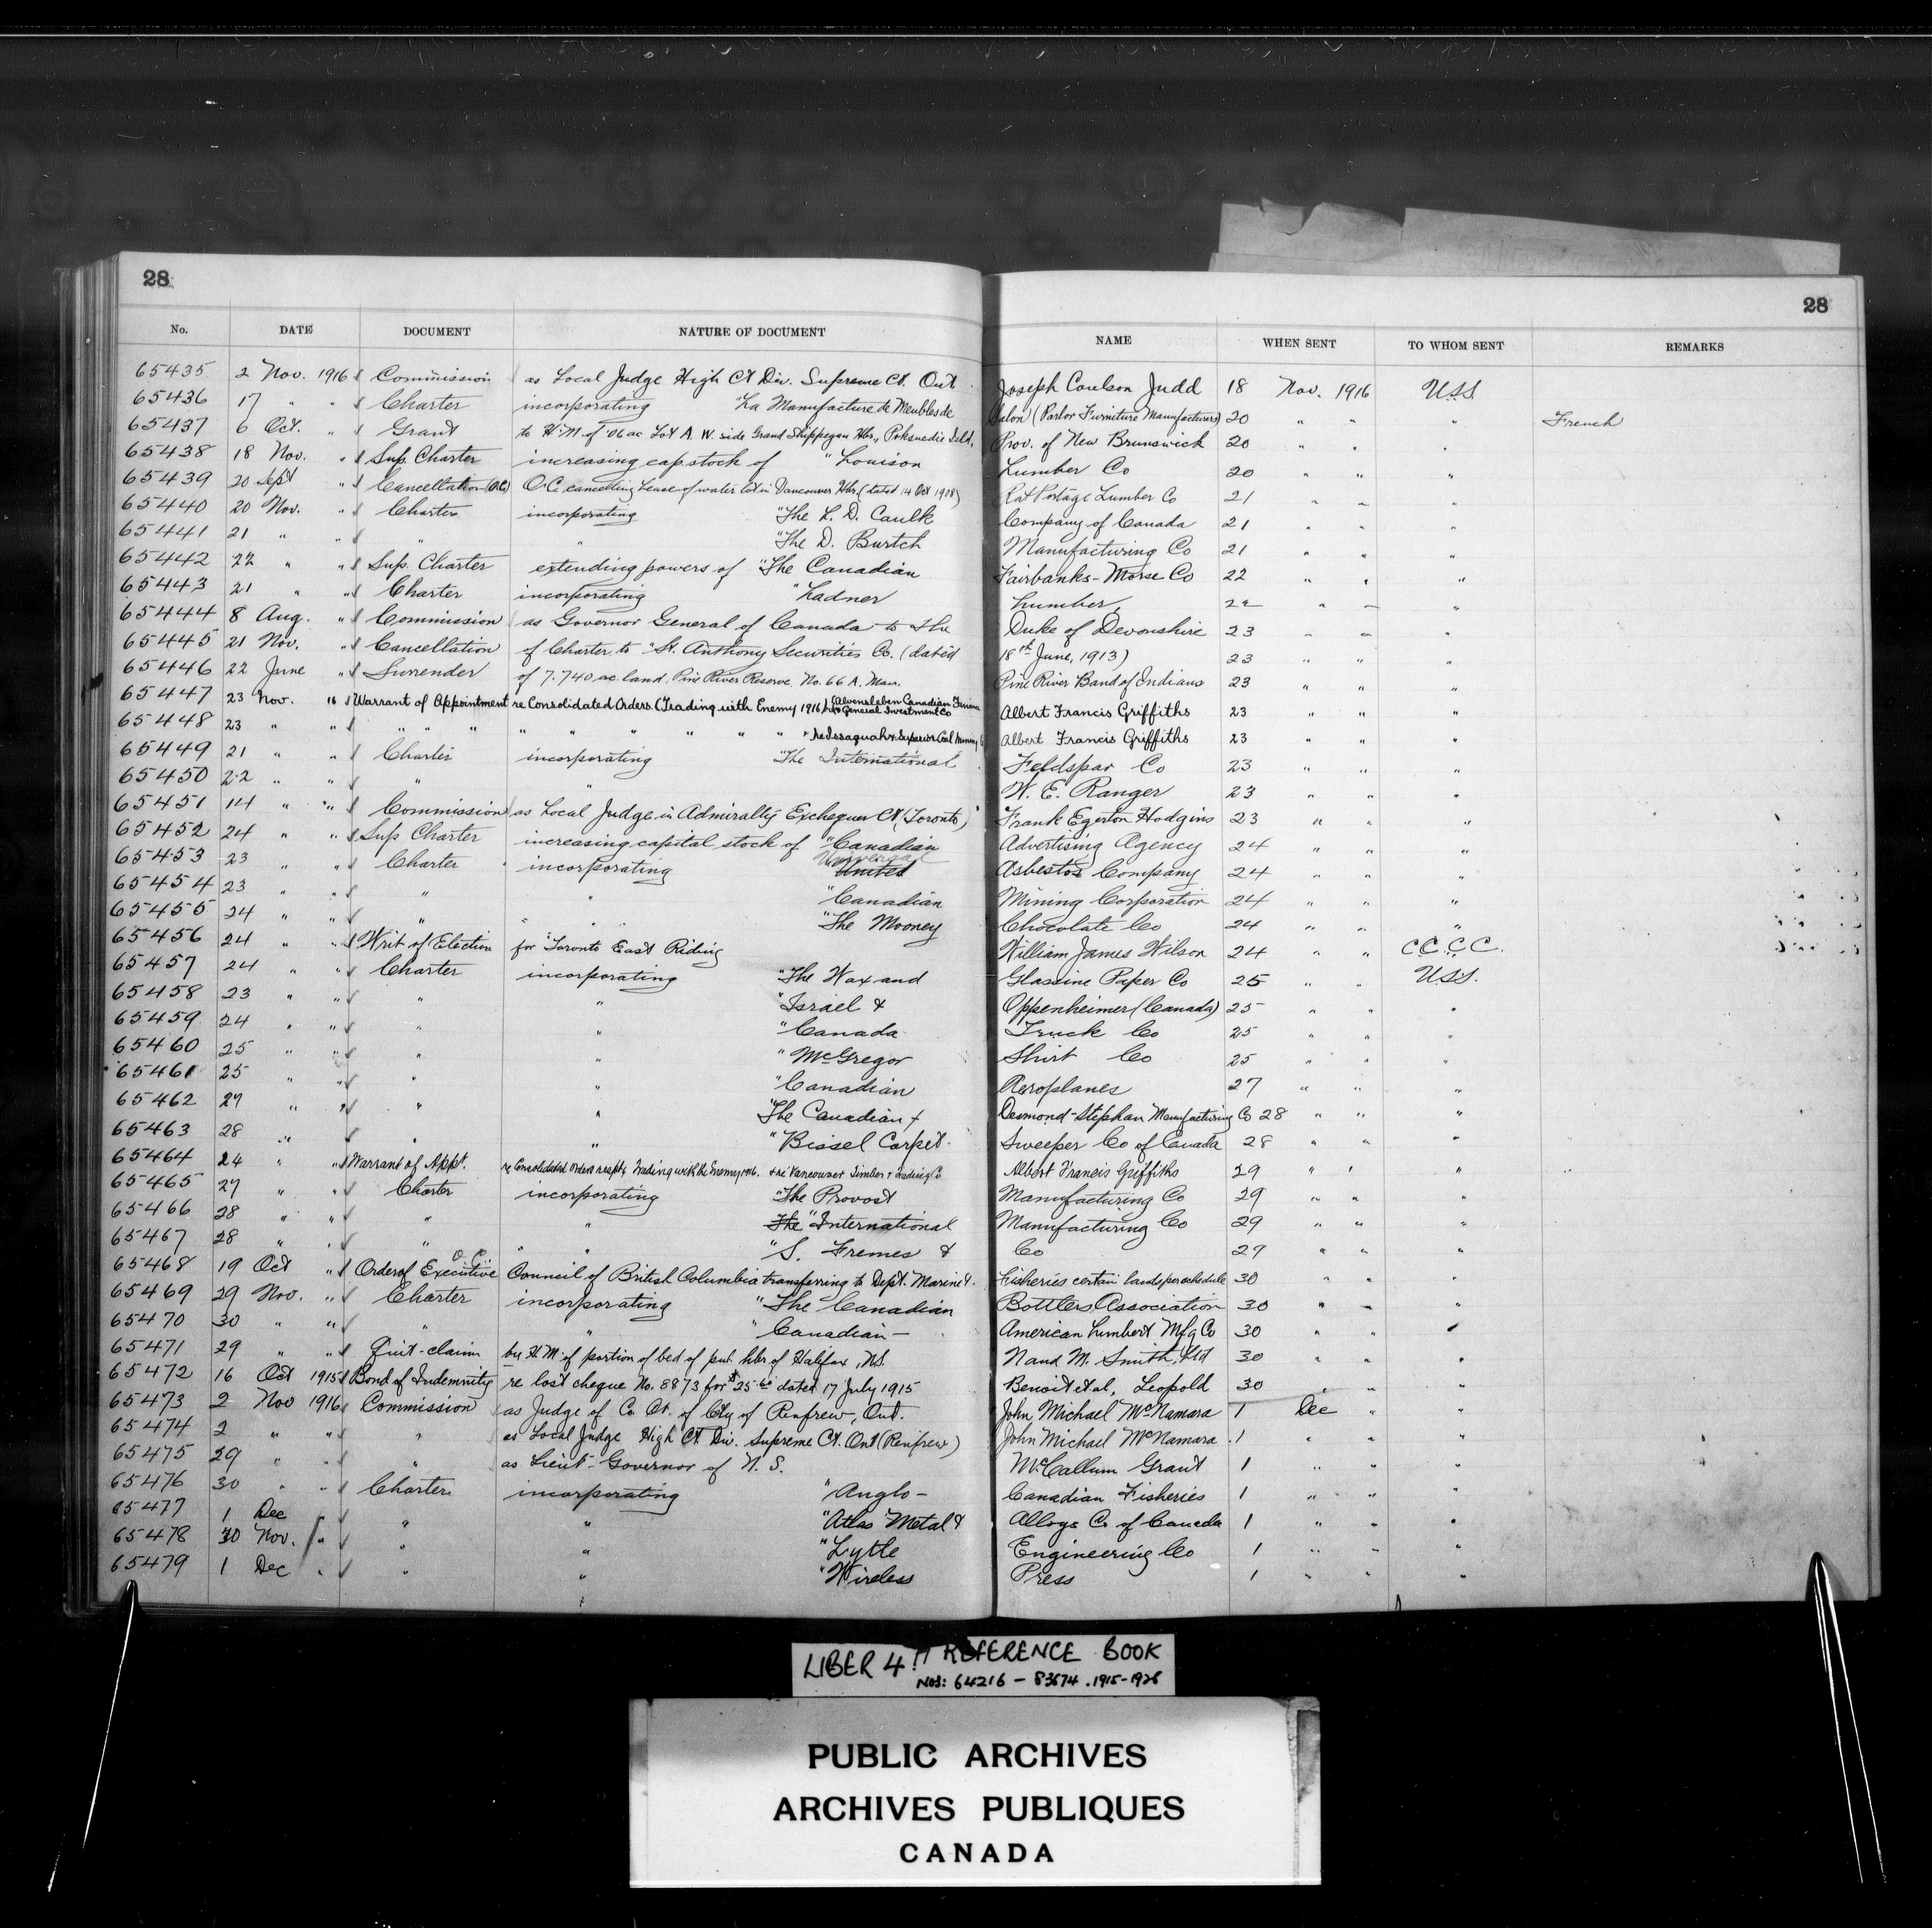 28
28
No. DATE DOCUMENT NATURE OF DOCUMENT NAME WHEN SENT TO WHOM SENT REMARKS
65435 2 Nov. 1916 Commission as Local Judge High Ct Div. Supreme Ct. Ont. Joseph Coulson Judd 18 Nov. 1916 U.S.S.
65436 17 " " Charter incorporating "La Manufacture de Meubles de Salon" (Parlor Furniture Manufacturers) 20 " " " French
65437 6 Oct. " Grant to H.M. of .06 ac Lot A. W. side Grand Shippegan Hbr., Poksuedie Isld. Prov. of New Brunswick 20 " " "
65438 18 Nov. " Sup. Charter increasing cap. stock of "Louison Lumber Co 20 " " "
65439 20 Sept " Cancellation (O.C.) O.C. cancelling Lease of water lot in Vancouver Hbr. (dated 14 Oct 1908) Rat Portage Lumber Co 21 " " "
65440 20 Nov. " Charter incorporating "The L. D. Caulk Company of Canada 21 " " "
65441 21 " " " " "The D. Burtch Manufacturing Co 21 " " "
65442 22 " " Sup. Charter extending powers of "The Canadian Fairbanks-Morse Co 22 " " "
65443 21 " " Charter incorporating "Ladner Lumber, 22 " " "
65444 8 Aug. " Commission as Governor General of Canada to the Duke of Devonshire 23 " " "
65445 21 Nov. " Cancellation of Charter to "St. Anthony Securities Co. (dated 18th June, 1913) 23 " " "
65446 22 June " Surrender of 7.740 ac. land. Pine River Reserve No. 66 A, Man. Pine River Band of Indians 23 " " "
65447 23 Nov. 16 Warrant of Appointment re Consolidated Orders (Trading with Enemy 1916) Alvensleben Canadian Finance & General Investment Co Albert Francis Griffiths 23 " " "
65448 23 " " " " " " " " " " " & re Issaquah & Superior Coal Mining Albert Francis Griffiths 23 " " "
65449 21 " " Charter incorporating "The International Feldspar Co 23 " " "
65450 22 " " " " W. E. Ranger 23 " " "
65451 14 " " Commission as Local Judge in Admiralty Exchequer Ct (Toronto) Frank Egerton Hodgins 23 " " "
65452 24 " " Sup Charter increasing capital stock of "Canadian Advertising Agency 24 " " "
65453 23 " " Charter incorporating United Universal Asbestos Company 24 " " "
65454 23 " " " " "Canadian Mining Corporation 24 " " "
65455 24 " " " " "The Mooney Chocolate Co 24 " " "
65456 24 " " Writ of Election for Toronto East Riding William James Wilson 24 " " C.C.C.C.
65457 24 " " Charter incorporating "The Wax and Glassine Paper Co 25 " " U.S.S.
65458 23 " " " " "Israel & Oppenheimer (Canada) 25 " " "
65459 24 " " " " "Canada Truck Co 25 " " "
65460 25 " " " " "McGregor Shirt Co 25 " " "
65461 25 " " " " "Canadian Aeroplanes 27 " " "
65462 27 " " " " "The Canadian & Desmond-Stephan Manufacturing Co 28 " " "
65463 28 " " " " "Bissel Carpet Sweeper Co of Canada 28 " " "
65464 24 " " Warrant of Appt. re Consolidated Orders respt'g Trading with the Enemy 1916. & re Vancouver Timber & Trading Co Albert Francis Griffiths 29 " " "
65465 27 " " Charter incorporating "The Provost Manufacturing Co 29 " " "
65466 28 " " " " The "International Manufacturing Co 29 " " "
65467 28 " " " " "S. Fremes & Co 29 " " "
65468 19 Oct " Order of Executive O.C. Council of British Columbia transferring to Dept. Marine & Fisheries certain lands per schedule 30 " " "
65469 29 Nov. " Charter incorporating "The Canadian Bottlers Association 30 " " "
65470 30 " " " " "Canadian- American Lumbert Mfg Co 30 " " "
65471 29 " " Quit-claim by H.M. of portion of bed of pub. hbr of Halifax, N.S. N and M. Smith, Ltd 30 " " "
65472 16 Oct 1915 Bond of Indemnity re lost cheque No. 8873 for $25.60 dated 17 July 1915 Benoit et al, Leopold 30 " " "
65473 2 Nov 1916 Commission as Judge of Co. Ct. of Cty of Renfrew, Ont. John Michael McNamara 1 Dec " "
65474 2 " " " as Local Judge High Ct. Div. Supreme Ct. Ont (Renfrew) John Michael McNamara 1 " " "
65475 29 " " " as Lieut-Governor of N.S. McCallum Grant 1 " " "
65476 30 " " Charter incorporating "Anglo- Canadian Fisheries 1 " " "
65477 1 Dec " " " "Atlas Metal & Alloys Co of Canada 1 " " "
65478 30 Nov. " " " "Lytle Engineering Co 1 " " "
65479 1 Dec " " " "Wireless Press 1 " " "
LIBER 4 REFERENCE BOOK
NOS: 64216 - 83674 . 1915-1926
PUBLIC ARCHIVES
ARCHIVES PUBLIQUES
CANADA